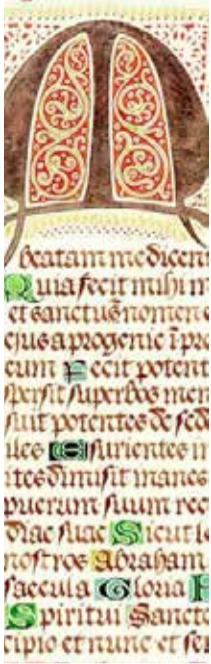 M
beatam me dicent
Quia fecit mihi m
et sanctum nomen e
ejus a progenie ī pro
eum Fecit potent
spersit superbos men
suit potentes de sede
iles Esurientes m
ites dimisit inanes
puerum suum rec
diae suae Sicut lo
nostros Abraham
saecula Gloria P
Spiritui Sancto
cipio et nunc et sem